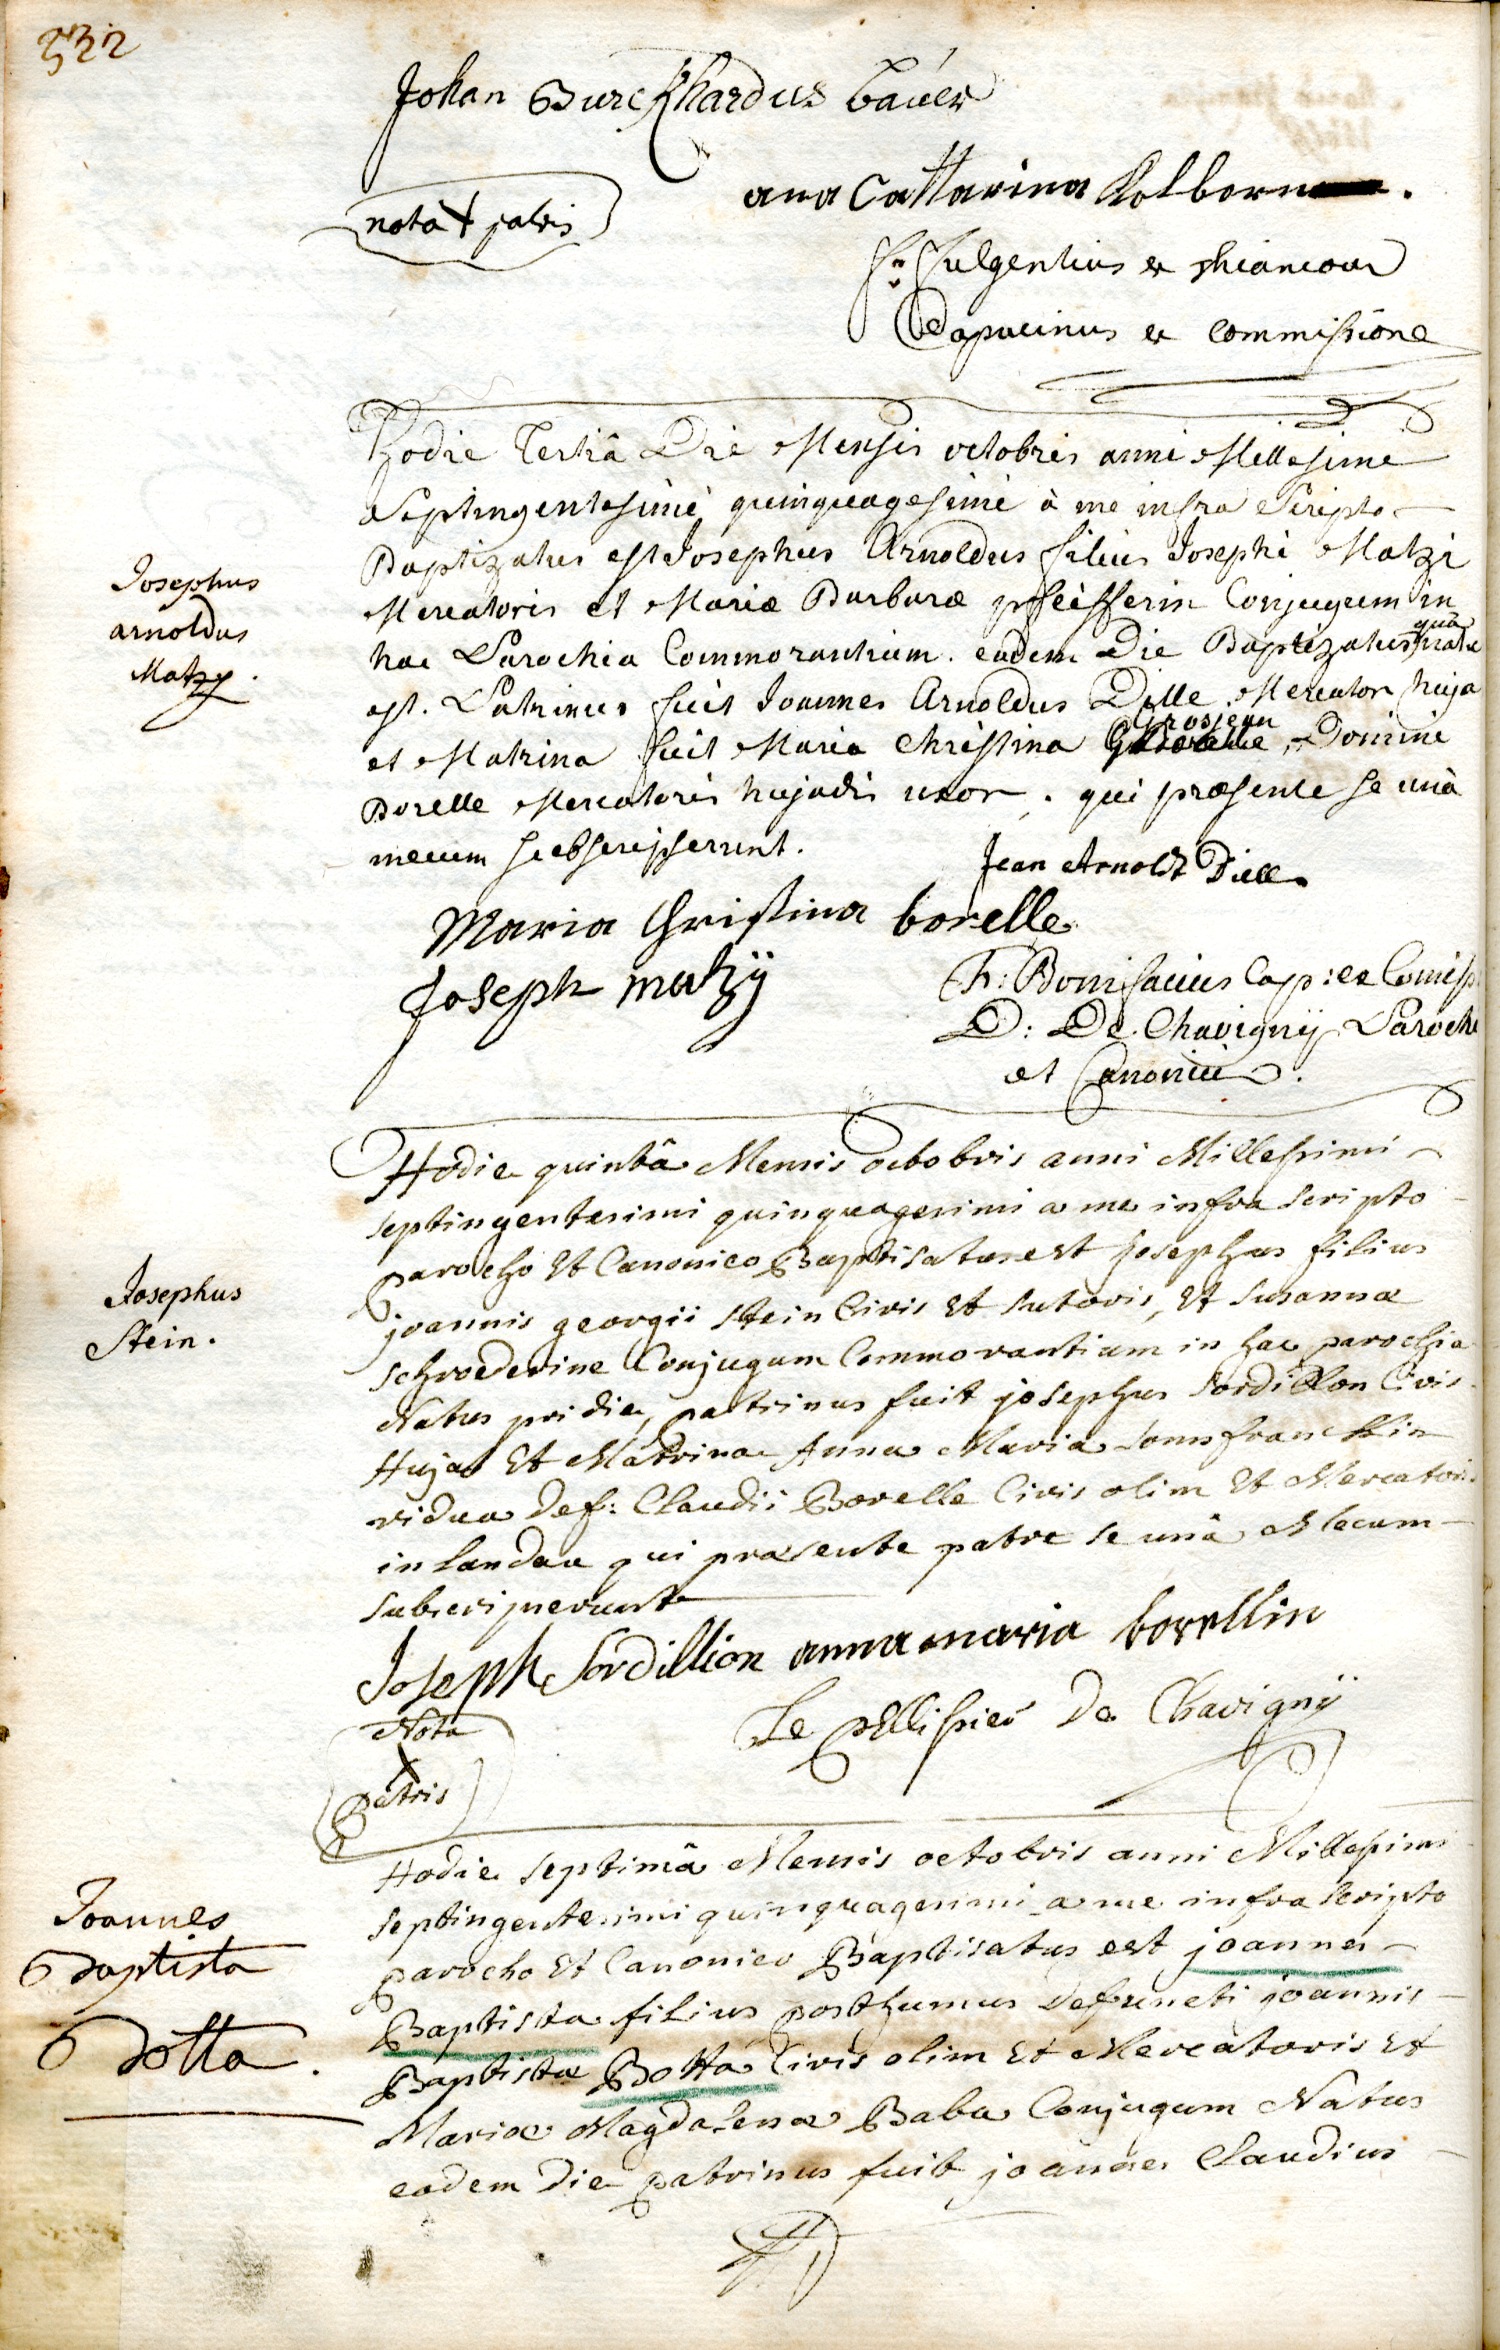 532
Johan Burckhardus bauer
ana Cattarina Kolborn
nota + patris
fr: fulgentius ex
Capucinus ex commissione
Hodie Tertiâ Die Mensis octobris anni Millesimi
Septingentesimi quinquagesimi à me infra Scripto
Baptizatus est Josephus Arnoldus filius Josephi Matzi
Josephus
arnoldus
Matzy.
Mercatoris et Mariæ Barbaræ pfeifferin Conjugum in
hac Parochia Commorantium. eadem Die Baptizatus quâ natus
est. Patrinus fuit Joannes Arnoldus Dille Mercator hujas
et Matrina fuit Maria Christina Grosjean Domini
Borelle Mercatoris hujadis uxor, qui præsente se unà
mecum subscripserunt.
Jean Arnoldt Dille
Maria Christina borelle
Joseph matzÿ
Fr: Bonifacius Cap: ex Comiss
D: De Chavignÿ Parochi
et Canonici.
Hodie quintâ Mensis octobris anni Millesimi
septingentesimi quinquagesimi a me infra scripto
parocho Et Canonico Baptisatus est josephus filius
Josephus
Stein.
joannis georgii stein Civis Et sutoris, Et susannæ
schroederine Conjugum Commorantium in hac parochia
Natus pridie, patrinus fuit josephus Sordillon Civis
Hujas Et Matrina Anna Maria Somsfranckin
vidua def: Claudii Borelle Civis olim Et Mercatoris
in landau qui præsente patre se unâ Mecum
subscripserunt
Joseph Sordillion anna maria borellin
Le pellissier De Chavignÿ
Nota
X
Patris
Hodie septimâ Mensis octobris anni Millesimi
septingentesimi quinquagesimi a me infra scripto
parocho Et Canonico Baptisatus est joannes
Joannes
Baptista
Botta.
Baptista filius posthumus defuncti joannis
Baptistæ Botta Civis olim Et Mercatoris Et
Mariæ Magdalenæ Baba Conjugum Natus
eadem die patrinus fuit joannes Claudius